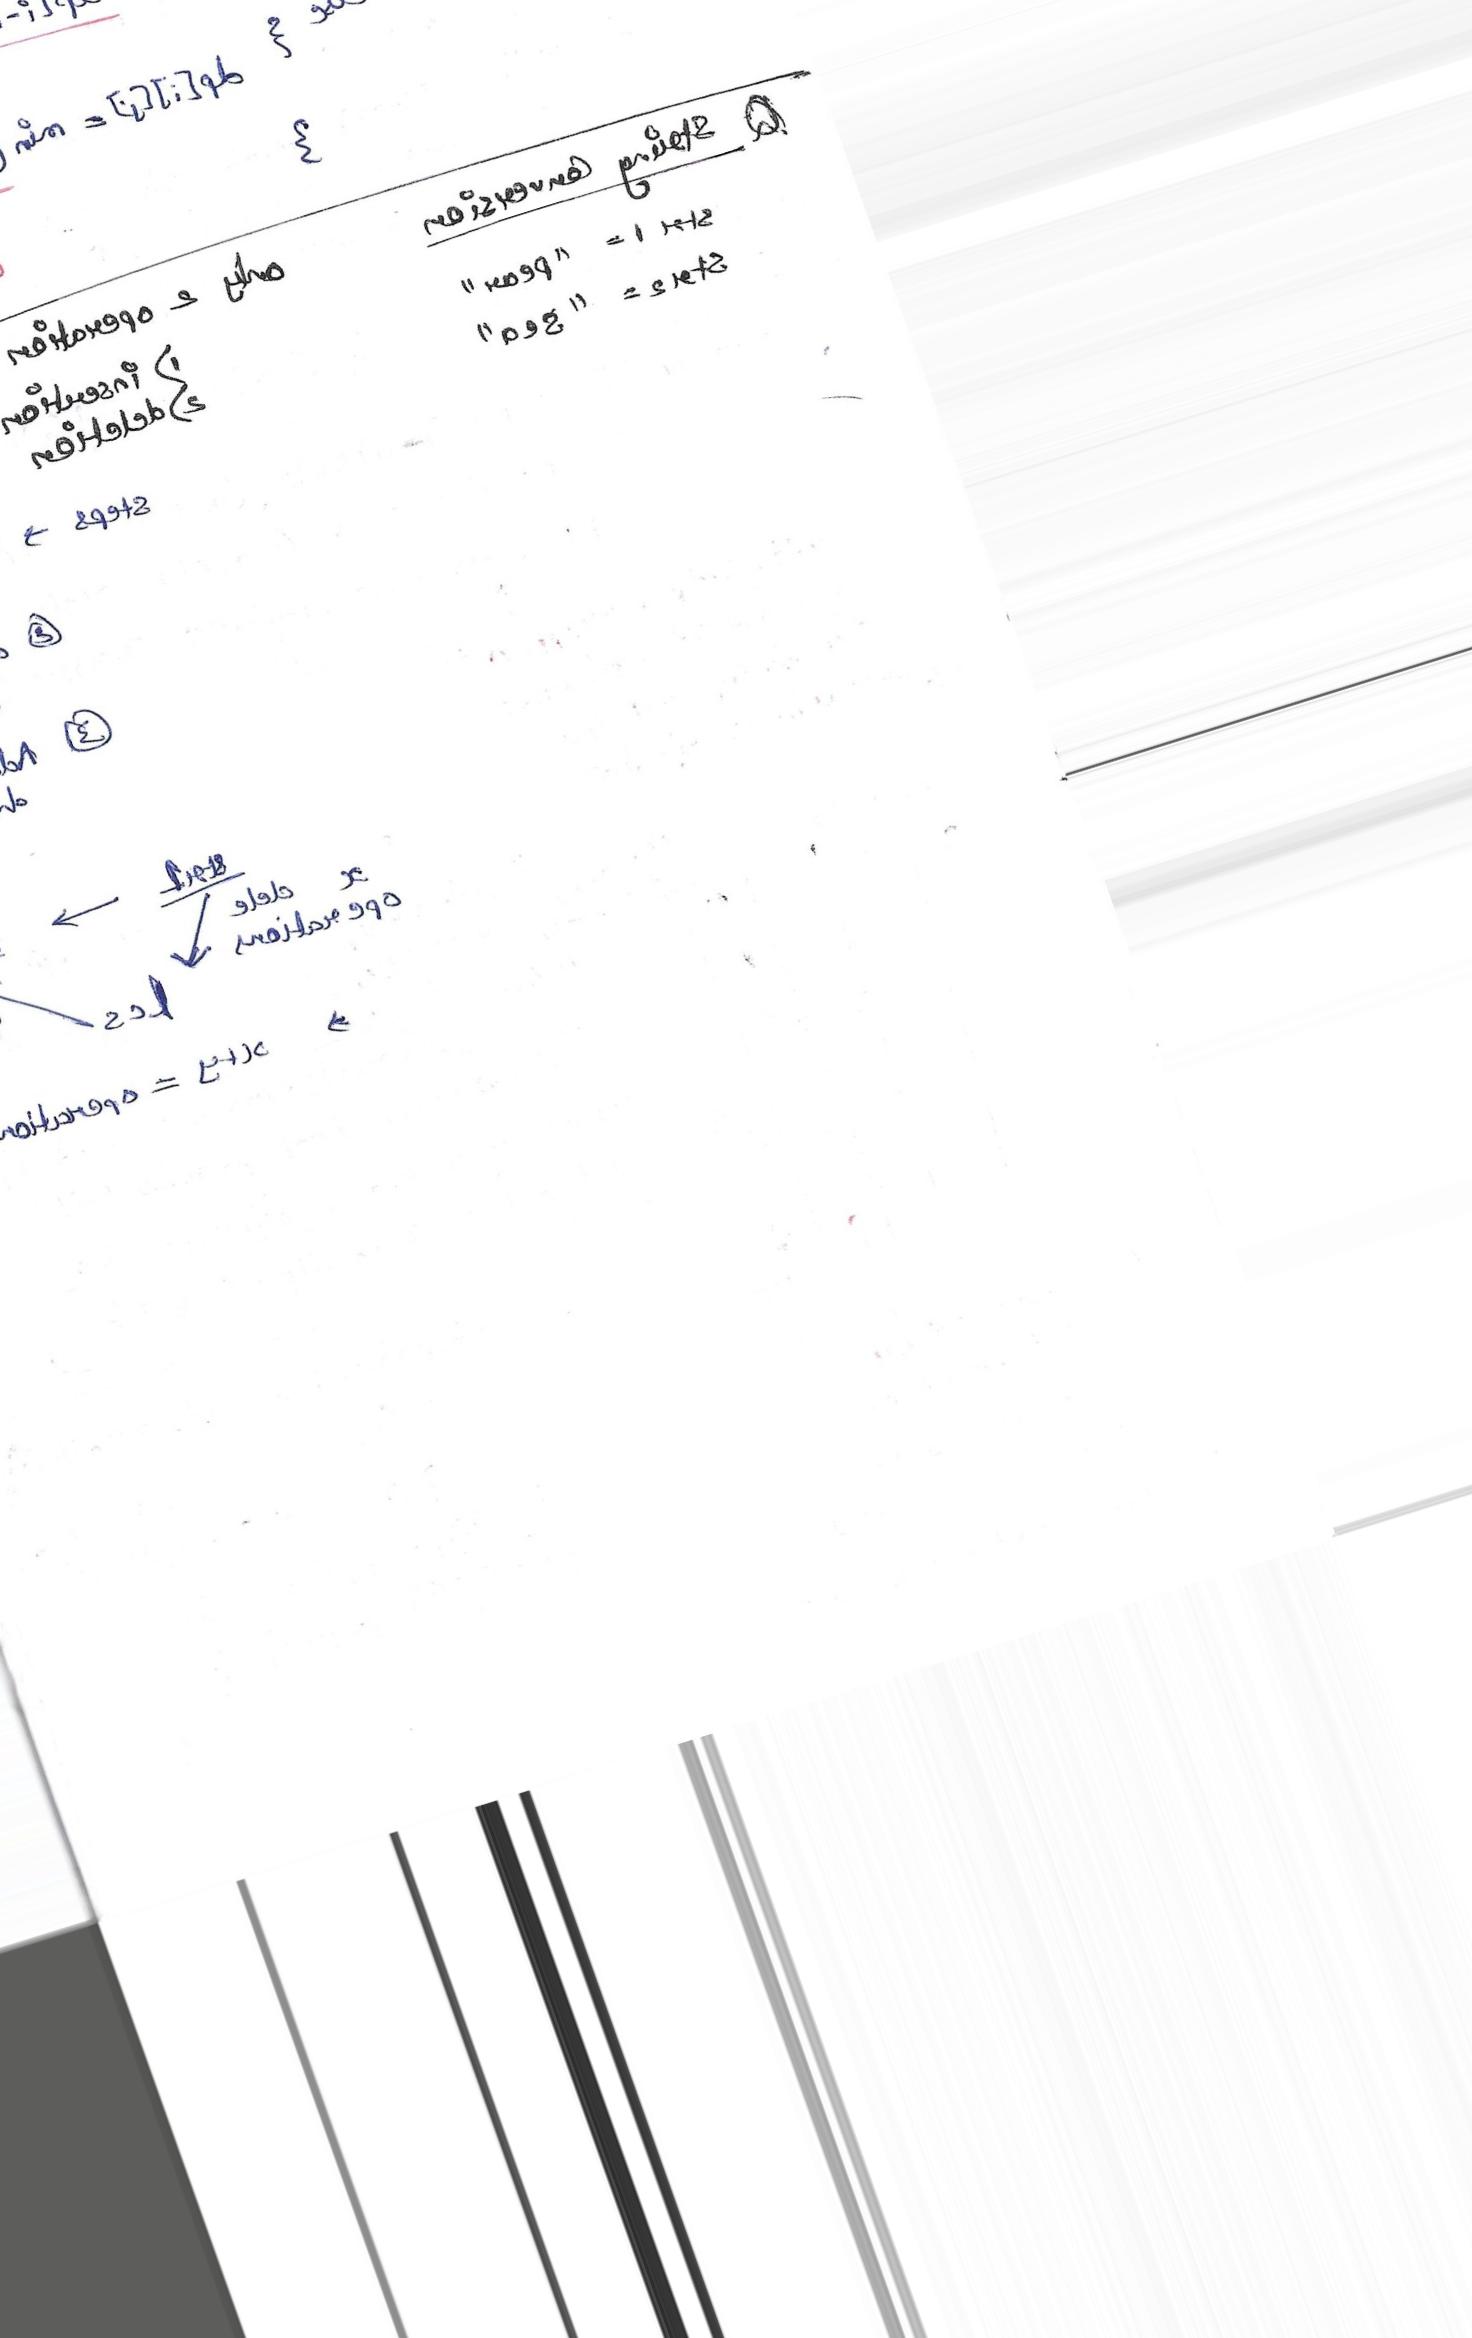 dp[i-
dp[i][j] = min
}
}
Q String Conversion
str 1 = "pear"
str2 = "sea"
only 2 operation
1 } insertion
2 } deletion
Steps →
②
③ Add
str1 →
x dele
operation
LCS
x+y = operation